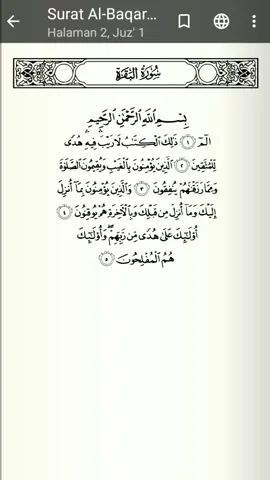 Surat Al-Baqar...
Halaman 2, Juz' 1
سُورَةُ البَقَرَة
بِسْمِ اللَّهِ الرَّحْمَٰنِ الرَّحِيمِ
الٓمٓ ١ ذَٰلِكَ الْكِتَابُ لَا رَيْبَ فِيهِ هُدًى
لِلْمُتَّقِينَ ٢ الَّذِينَ يُؤْمِنُونَ بِالْغَيْبِ وَيُقِيمُونَ الصَّلَاةَ
وَمِمَّا رَزَقْنَاهُمْ يُنفِقُونَ ٣ وَالَّذِينَ يُؤْمِنُونَ بِمَا أُنزِلَ
إِلَيْكَ وَمَا أُنزِلَ مِن قَبْلِكَ وَبِالْآخِرَةِ هُمْ يُوقِنُونَ ٤
أُولَٰئِكَ عَلَىٰ هُدًى مِّن رَّبِّهِمْ وَأُولَٰئِكَ
هُمُ الْمُفْلِحُونَ ٥